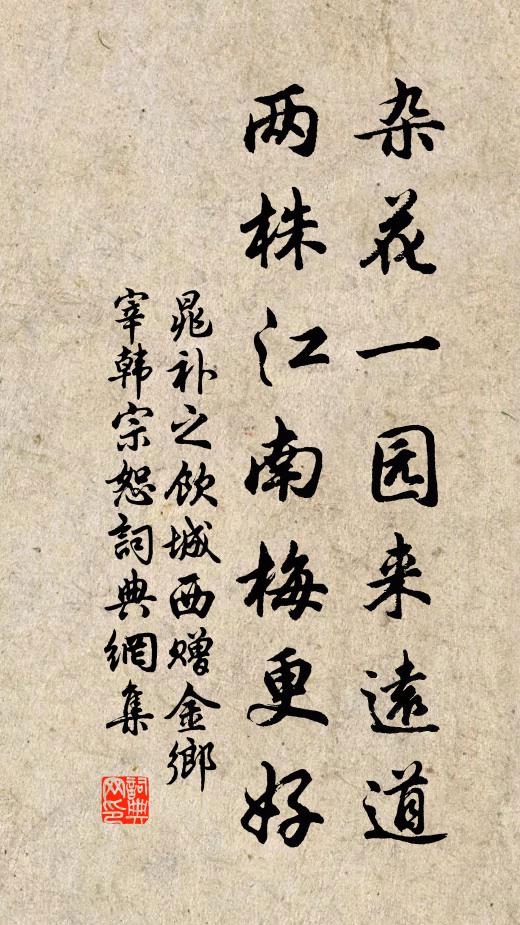 杂花一园来遠道
两株江南梅更好
晁补之饮城西赠金鄉
宰韩宗恕詞典網集
詞典网印